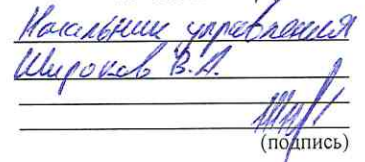 Начальник управления
Широков В.А.
(подпись)